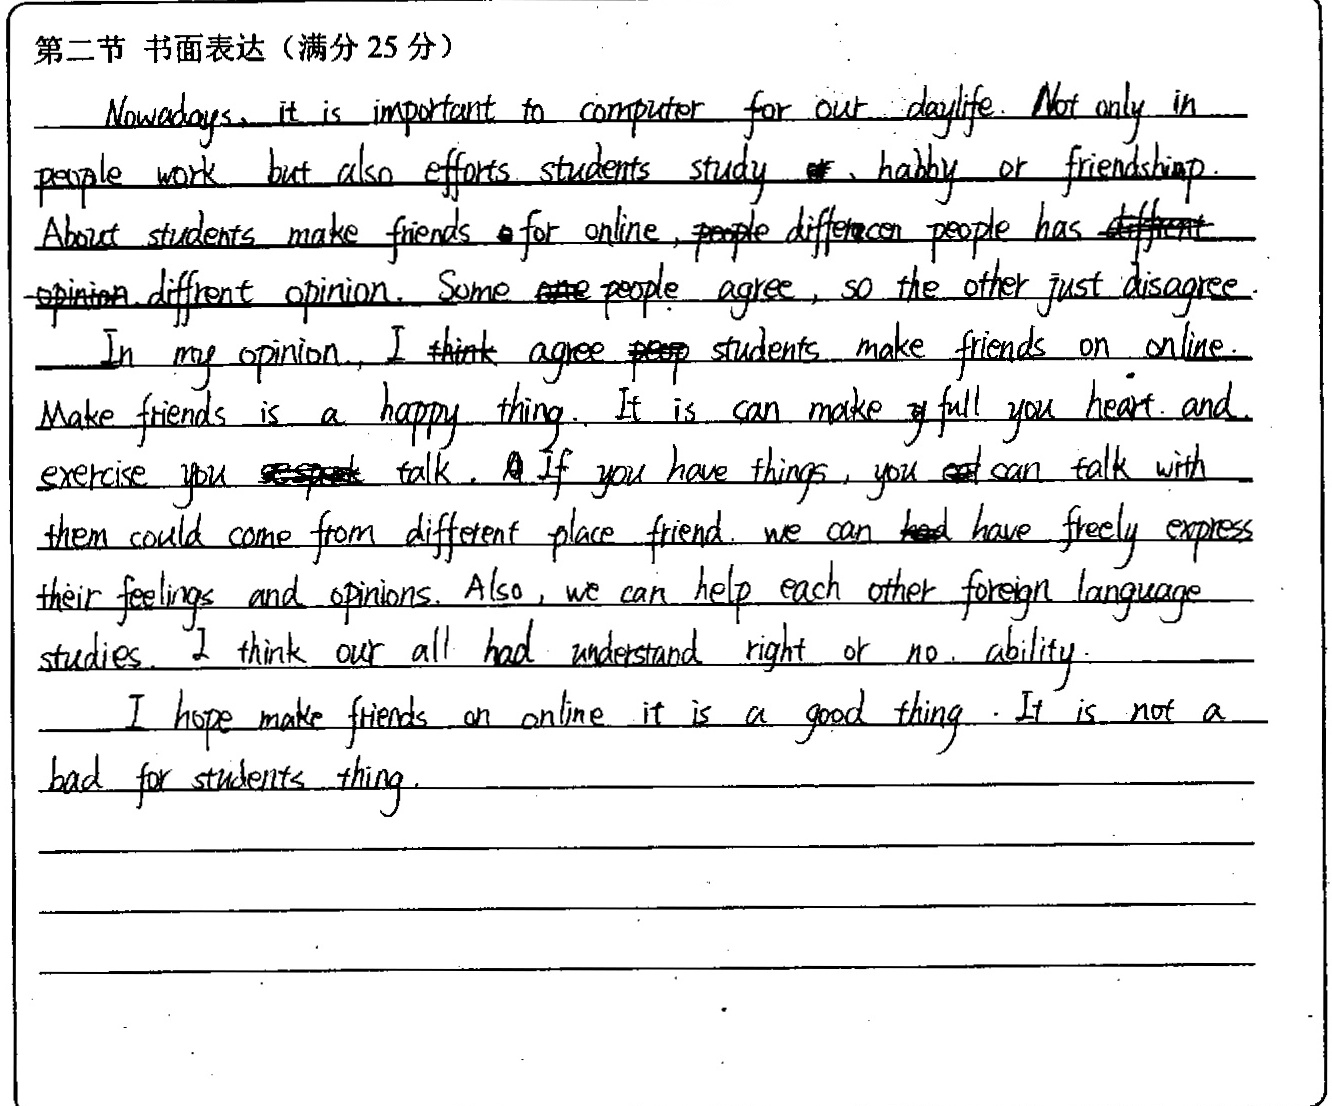 第二节 书面表达（满分 25 分）
Nowadays, it is important to computer for our daylife. Not only in
people work but also efforts students study , habby or friendship.
About students make friends for online, people differencen people has
diffrent opinion. Some people agree, so the other just disagree.
In my opinion, I agree students make friends on online.
Make friends is a happy thing. It is can make full you heart and
exercise you talk. If you have things, you can talk with
them could come from different place friend. we can have freely express
their feelings and opinions. Also, we can help each other foreign language
studies. I think our all had understand right or no. ability.
I hope make friends on online it is a good thing. It is not a
bad for students thing.